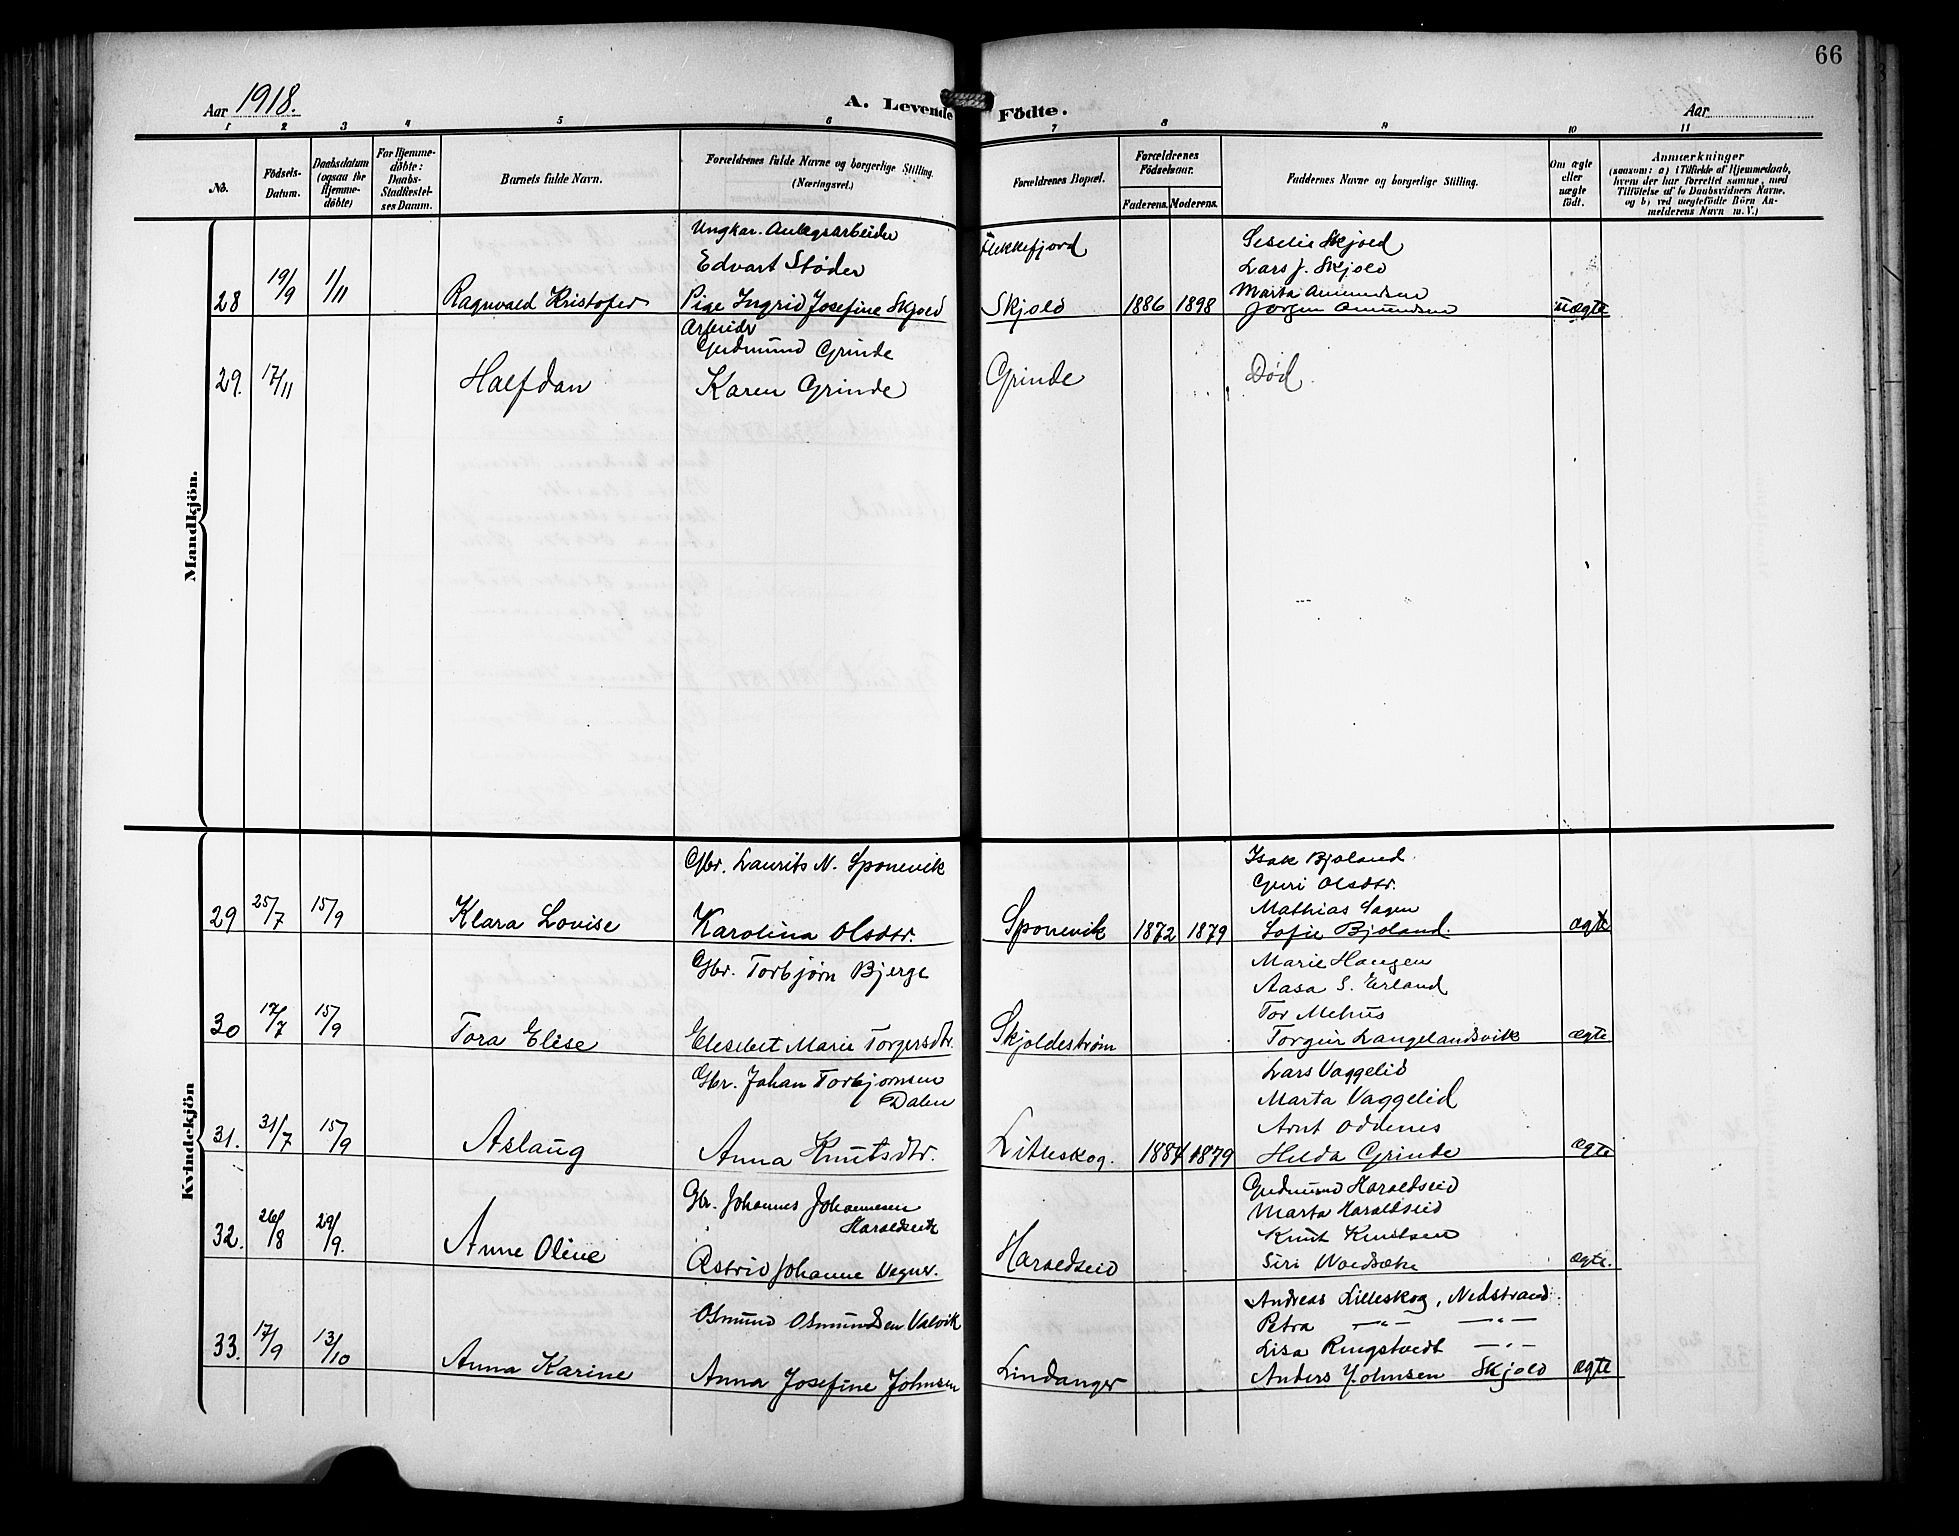 66
Aar 1918.
A. Levende Födte.
Aar
1 2 3 4 5 6 7 8 9 10 11
No.
Födsels-
Datum.
Daabsdatum
(ogsaa for
Hjemme-
döbte)
For Hjemme-
döbte:
Daabs-
Stadfæstel-
ses Datum.
Barnets fulde Navn.
Forældrenes fulde Navne og borgerlige Stilling.
(Næringsvei.)
Forældrenes Bopæl.
Forældrenes
Födselsaar.
Faderens. Moderens.
Faddernes Navne og borgerlige Stilling.
Om ægte
eller
uægte
födt.
Anmærkninger
(saasom: a) i Tilfælde af Hjemmedaab,
hvem der har forrettet samme, med
Tilföielse af to Daabsvidners Navne,
og b) ved uægtefödte Börn An-
melderens Navn m. V.)
Mandkjön.
Ungkar. Anlægsarbeider
Edvart Støder
Flekkefjord
28 19/9 1/11 Ragnvald Kristofer Pige Ingrid Josefine Skjold Skjold 1886 1898
Lars J. Skjold
Marta Amundsen
Jørgen Amundsen
uægte
Arbeider
Gudmund Grinde
29. 17/11 Halfdan Karen Grinde Grinde Død.
Kvindekjön
Gbr. Laurits N. Sponevik
29 25/7 15/9 Klara Lovise Karolina Olsdtr. Sponevik 1872 1879
Isak Bjoland
Guri Olsdtr.
Mathias Sagen
Sofie Bjoland.
ægte
Gbr. Torbjørn Bjerge
30 17/7 15/9 Tora Elise Elesebet Marie Torgersdtr. Skjoldestrøm
Marie Haugen
Aasa S. Erland
Tor Mehus
Torgeir Langelandsvik
ægte
Gbr. Johan Torbjørnsen
Dalen
31. 31/7 15/9 Aslaug Anna Knutsdtr. Litleskog. 1884 1879
Lars Vaggelid
Marta Vaggelid
Arnt Oddenes
Helda Grinde
ægte
Gbr. Johannes Johannesen
Haraldseid
32. 26/8 29/9. Anne Oline Astrid Johanne Vegner. Haraldseid
Gudmund Haraldseid
Marta Haraldseid
Knut Knutsen
Siri
ægte.
Osmund Osmundsen Valvik
33. 17/9 13/10 Anna Karine Anna Josefine Johnsen Lindanger
Andreas Lilleskog, Nedstrand
Petra —"— —"—
Lisa Ringstvedt —"—
Anders Johnsen Skjold
ægte